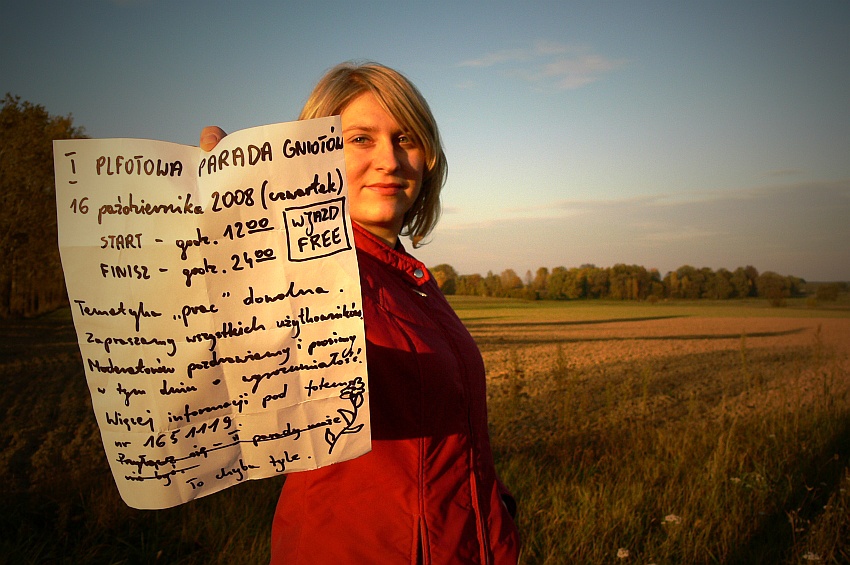 I PLFOTOWA PARADA GNIOTÓW
16 października 2008 (czwartek)
START - godz. 12⁰⁰
WJAZD
FREE
FINISZ - godz. 24⁰⁰
Tematyka „prac" dowolna.
Zapraszamy wszystkich użytkowników,
Moderatorów pozdrawiamy i prosimy
w tym dniu o wyrozumiałość.
Więcej informacji pod fotem
nr 1651119.
Przyłącz się - w parady
To chyba tyle.